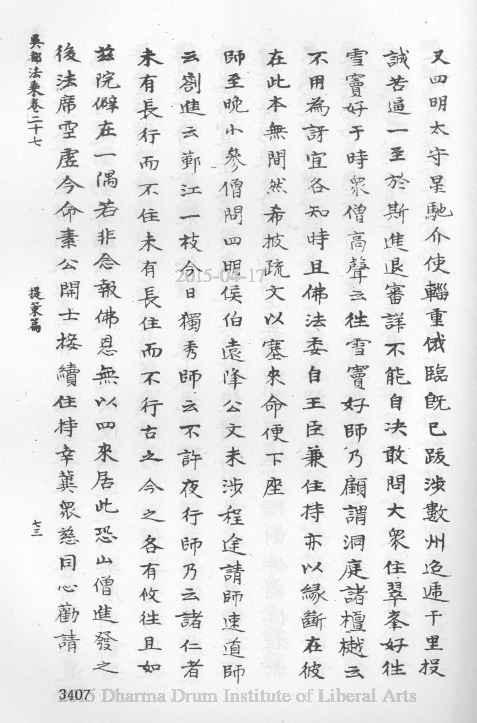 又四明太守星馳介使輜重俄臨旣已跋涉數州迢遞千里投
誠苦逼一至於斯進退審詳不能自决敢問大衆住翠峯好往
雪竇好于時衆僧高聲云往雪竇好師乃顧謂洞庭諸檀樾云
不用為訝宜各知時且佛法委自王臣兼住持亦以緣斷在彼
在此本無間然希披疏文以塞來命便下座
師至晚小參僧問四明侯伯遠降公文未涉程途請師速道師
云劄進云鄞江一枝今日獨秀師云不許夜行師乃云諸仁者
未有長行而不住未有長住而不行古之今之各有攸往且如
茲院僻在一隅若非念報佛恩無以四來居此恐山僧進發之
後法席空虛今命素公開士接續住持幸冀衆慈同心勸請
吳都法乘卷二十七
提策篇
七三
3407
2015-04-17
Dharma Drum Institute of Liberal Arts